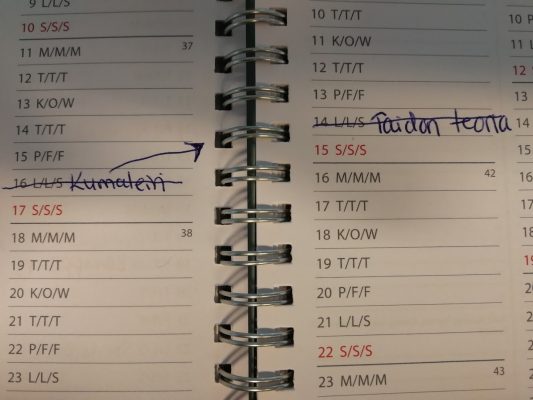 9 L/L/S
10 S/S/S
11 M/M/M 37
12 T/T/T
13 K/O/W
14 T/T/T
15 P/F/F
16 L/L/S Kumaleiri
17 S/S/S
18 M/M/M 38
19 T/T/T
20 K/O/W
21 T/T/T
22 P/F/F
23 L/L/S
10 T/T/T
11 K/O/W
12 T/T/T
13 P/F/F
14 L/L/S Taidon teoria
15 S/S/S
16 M/M/M 42
17 T/T/T
18 K/O/W
19 T/T/T
20 P/F/F
21 L/L/S
22 S/S/S
23 M/M/M 43
10 P
11 L
12
13
14
15
16
17
18